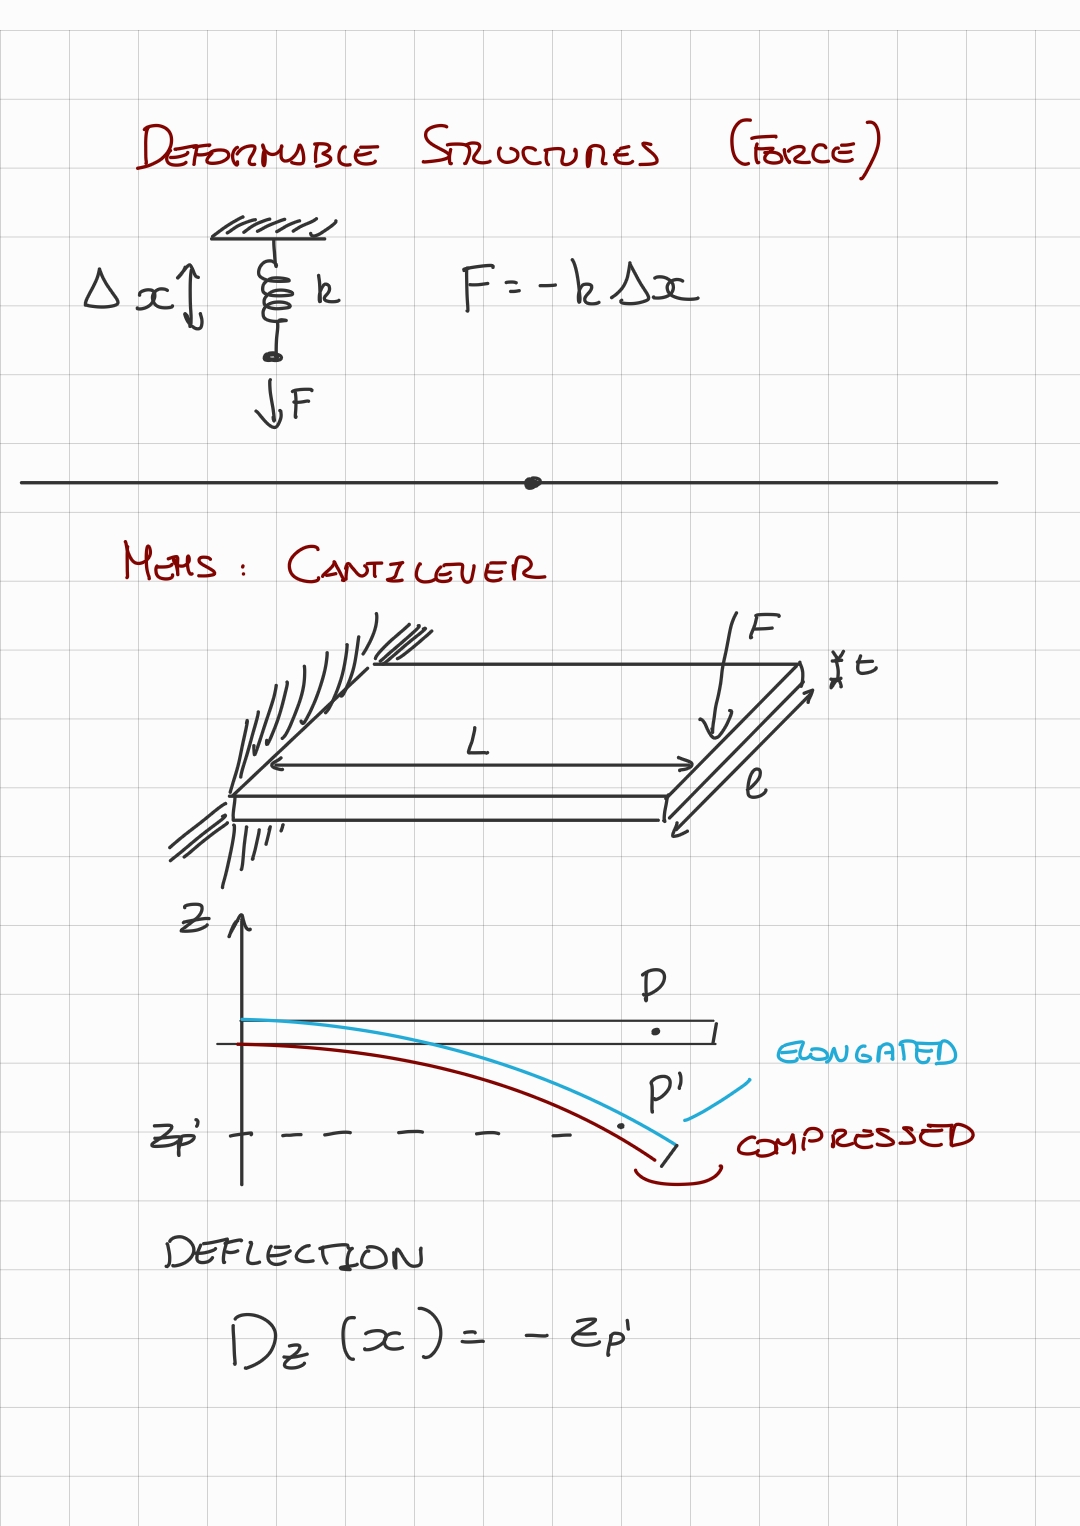 DEFORMABLE STRUCTURES (FORCE)
Δx k F = -k Δx
F
MEMS : CANTILEVER
F
t
L
l
Z
P
ELONGATED
P'
Zp'
COMPRESSED
DEFLECTION
Dz (x) = - Zp'